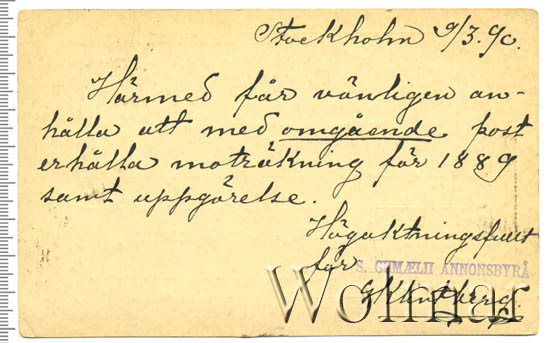 Stockholm 9/3.90.
Härmed får vänligen an-
hålla att med omgående post
erhålla moträkning för 1889
samt uppgörelse.
Högaktningsfullt
för
S. GUMÆLII ANNONSBYRÅ
Wolmar